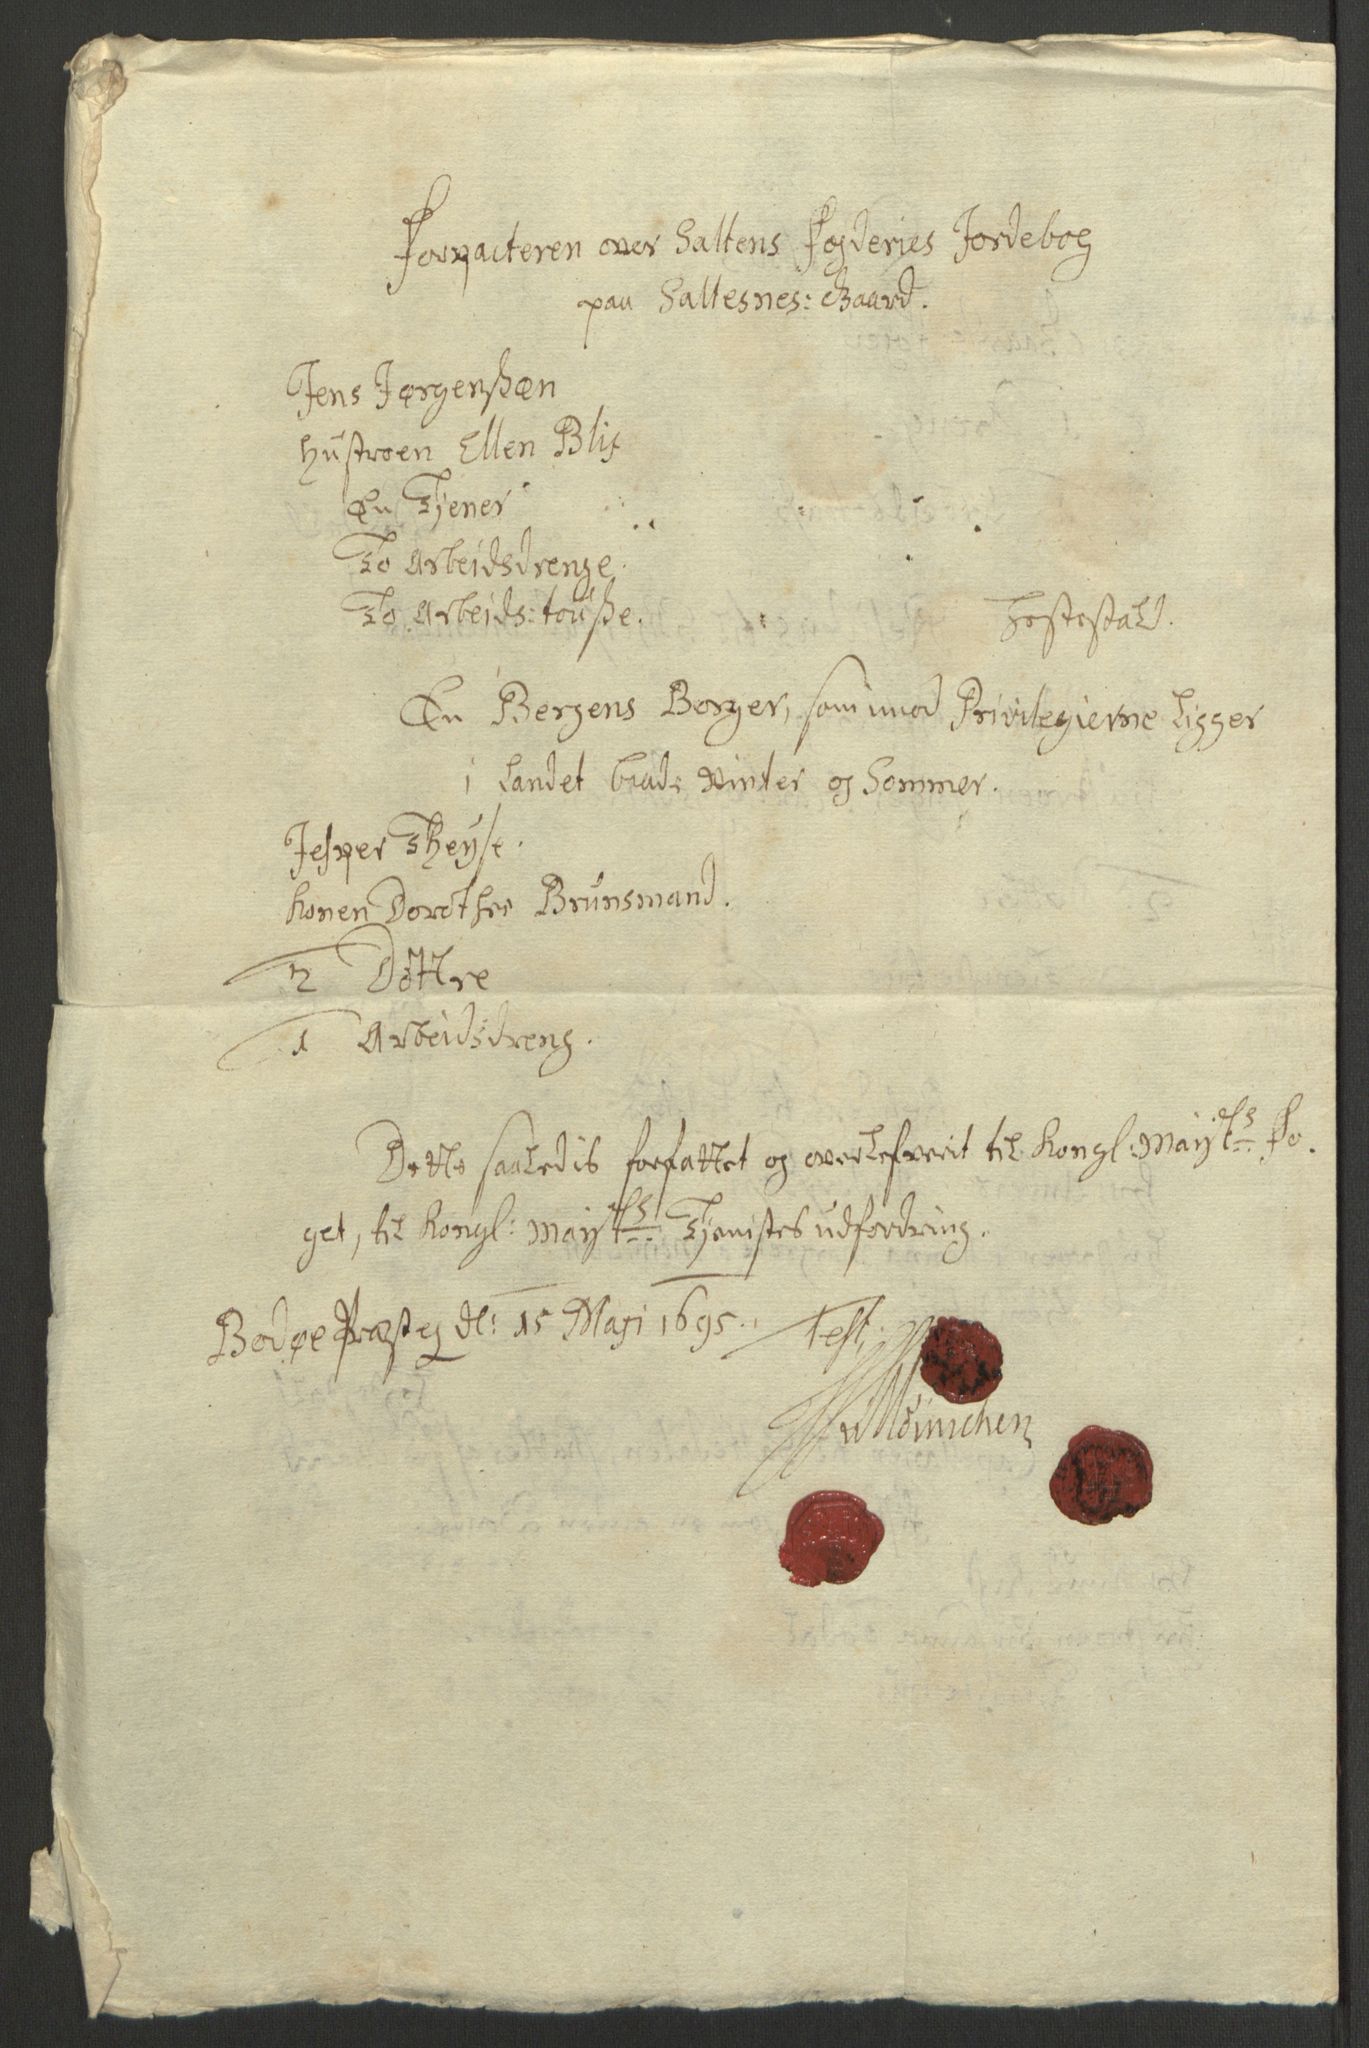 Forpacteren over Saltens Fogderies Jordebog
paa Saltesnes: Gaard.
Jens Jørgenssøn
Hustroen Ellen Blix
En Tjener
To Arbeidsdrenge.
To Arbeids: tousse. Hestestald.
En Bergens Borger, som imod Privilegierne Ligger
i Landet baade Winter og Sommer.
Jesper Theyste.
Konen Dorothee Brunsmand.
2 Døttre
1 Arbeidsdreng.
Dette saaledis forfattet og overlefverit til Kongl: Maijts Fo-
get, til Kongl: Maijts Tjenistes udfordring.
Bodøe Præsteg d: 15 Maji 1695.. Test: